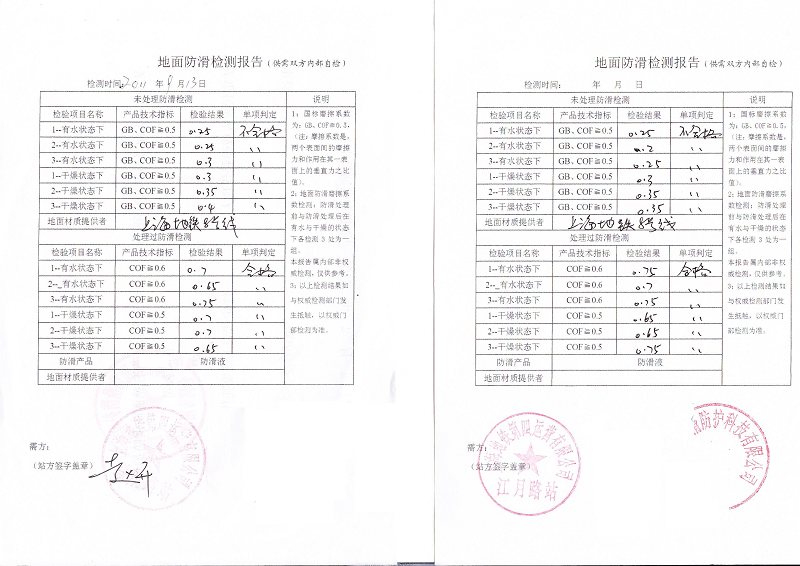 地面防滑检测报告（供需双方内部自检）
检测时间：2011 年 8 月 13 日
未处理防滑检测 说明
检验项目名称 产品技术指标 检验结果 单项判定
1--有水状态下 GB、COF≧0.5 0.25 不合格
2--有水状态下 GB、COF≧0.5 0.25 〃
3--有水状态下 GB、COF≧0.5 0.3 〃
1--干燥状态下 GB、COF≧0.5 0.3 〃
2--干燥状态下 GB、COF≧0.5 0.35 〃
3--干燥状态下 GB、COF≧0.5 0.4 〃
地面材质提供者 上海地铁8号线
处理过防滑检测
检验项目名称 产品技术指标 检验结果 单项判定
1--有水状态下 COF≧0.6 0.7 合格
2--有水状态下 COF≧0.6 0.65 〃
3--有水状态下 COF≧0.6 0.75 〃
1--干燥状态下 COF≧0.5 0.7 〃
2--干燥状态下 COF≧0.5 0.7 〃
3--干燥状态下 COF≧0.5 0.65 〃
防滑产品 防滑液
地面材质提供者
1：国标磨擦系数
为：GB、COF≧0.5，
（注：摩擦系数是，
两个表面间的摩擦
力和作用在其一表
面上的垂直力之比
值）。
2：地面防滑磨擦系
数检测：防滑处理
前与防滑处理后在
有水与干燥的状态
下各检测 3 处为一
组。
本报告属内部非权
威检测，仅供参考。
3：以上检测结果如
与权威检测部门发
生抵触，以权威门
部检测为准。
需方：
（站方签字盖章）
地面防滑检测报告（供需双方内部自检）
检测时间： 年 月 日
未处理防滑检测 说明
检验项目名称 产品技术指标 检验结果 单项判定
1--有水状态下 GB、COF≧0.5 0.25 不合格
2--有水状态下 GB、COF≧0.5 0.2 〃
3--有水状态下 GB、COF≧0.5 0.25 〃
1--干燥状态下 GB、COF≧0.5 0.3 〃
2--干燥状态下 GB、COF≧0.5 0.35 〃
3--干燥状态下 GB、COF≧0.5 0.35 〃
地面材质提供者 上海地铁8号线
处理过防滑检测
检验项目名称 产品技术指标 检验结果 单项判定
1--有水状态下 COF≧0.6 0.75 合格
2--有水状态下 COF≧0.6 0.7 〃
3--有水状态下 COF≧0.6 0.75 〃
1--干燥状态下 COF≧0.5 0.65 〃
2--干燥状态下 COF≧0.5 0.65 〃
3--干燥状态下 COF≧0.5 0.75 〃
防滑产品 防滑液
地面材质提供者
1：国标磨擦系数
为：GB、COF≧0.5，
（注：摩擦系数是，
两个表面间的摩擦
力和作用在其一表
面上的垂直力之比
值）。
2：地面防滑磨擦系
数检测：防滑处理
前与防滑处理后在
有水与干燥的状态
下各检测 3 处为一
组。
本报告属内部非权
威检测，仅供参考。
3：以上检测结果如
与权威检测部门发
生抵触，以权威门
部检测为准。
需方：
（站方签字盖章）
运营有限公司
江月路站
防护科技有限公司